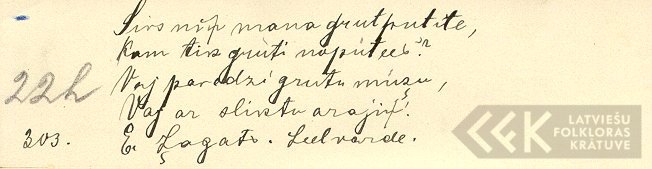 Sirsniņ mana grutputite,
Kam tik grūti nopūtees?
Vaj paradzi grutu mūžu,
Vaj ar sliktu arajiņ?
22h
203. E. Zagata. Ledvarde.
LATVIEŠU
FOLKLORAS
KRĀTUVE